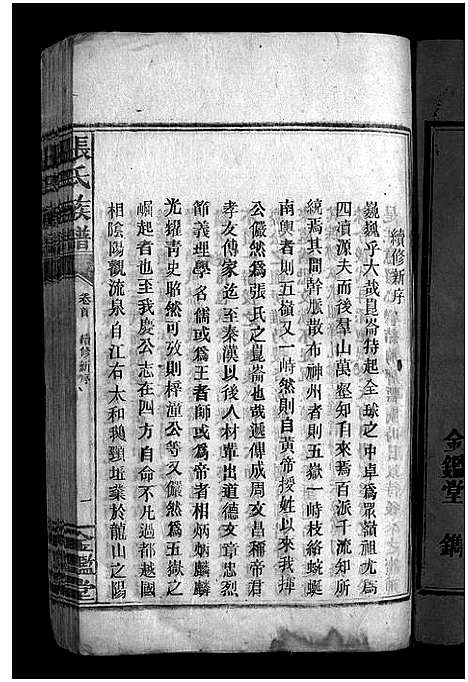 續修新序
巍巍乎大哉崑崙特起全球之中卓爲眾嶽祖尤爲
四瀆源夫而後羣山萬壑知自來焉百派千流知所
統焉其間幹脈散布神州者則五嶽一峙枝絡蜿蜒
南輿者則五嶺又一峙然則自黃帝授姓以來我揮
公儼然爲張氏之崑崙也哉遞傳成周文昌稱帝君
孝友傳家迄至秦漢以後人材輩出道德文章忠烈
節義理學名儒或爲王者師或爲帝者相炳炳麟麟
光耀青史昭然可攷則梓潼公等又儼然爲五嶽之
崛起者也至我慶公志在四方自命不凡過都越國
相陰陽觀流泉自江右太和鵝頸坵業於龍山之陽
張氏族譜
卷首
續修新序
一
金鑑堂
金鑑堂
鐫